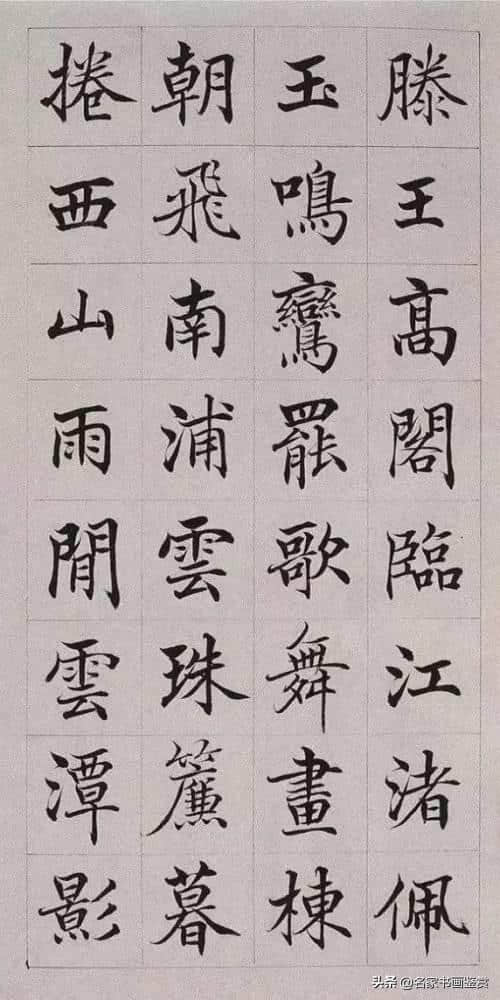 滕王髙閣臨江渚佩
玉鳴鸞罷歌舞畫棟
朝飛南浦雲珠簾暮
捲西山雨閒雲潭影
头条 @名家书画鉴赏